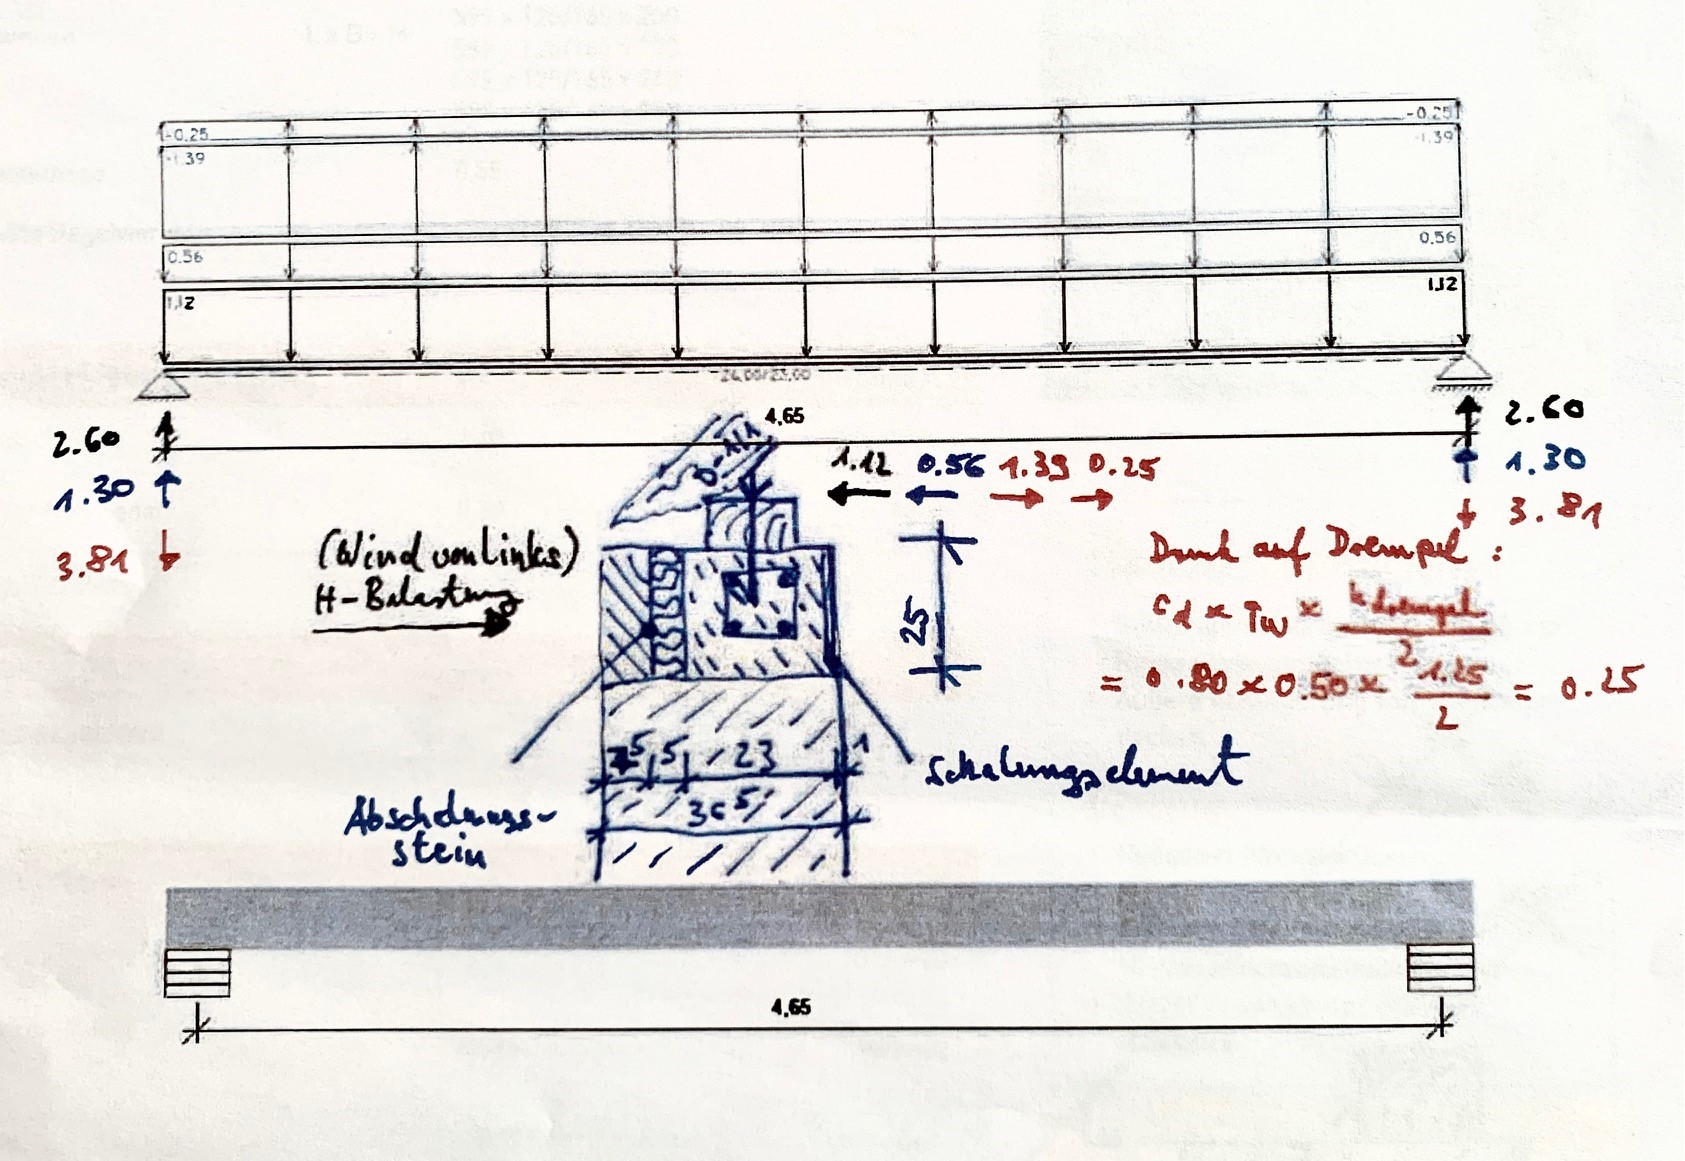 -0.25 -0.25
-1.39 -1.39
0.56 0.56
1.12 1.12
24.00/23.00
4.65
2.60 2.60
1.30 1.30
3.81 3.81
1.12 0.56 1.39 0.25
(Wind von links)
H-Belastung
25
Druck auf Drempel :
cd × qw × hdrempel / 2
= 0.80 × 0.50 × 1.25 / 2 = 0.25
5 23 1
36⁵
Schalungselement
Abschalungs-
stein
4.65